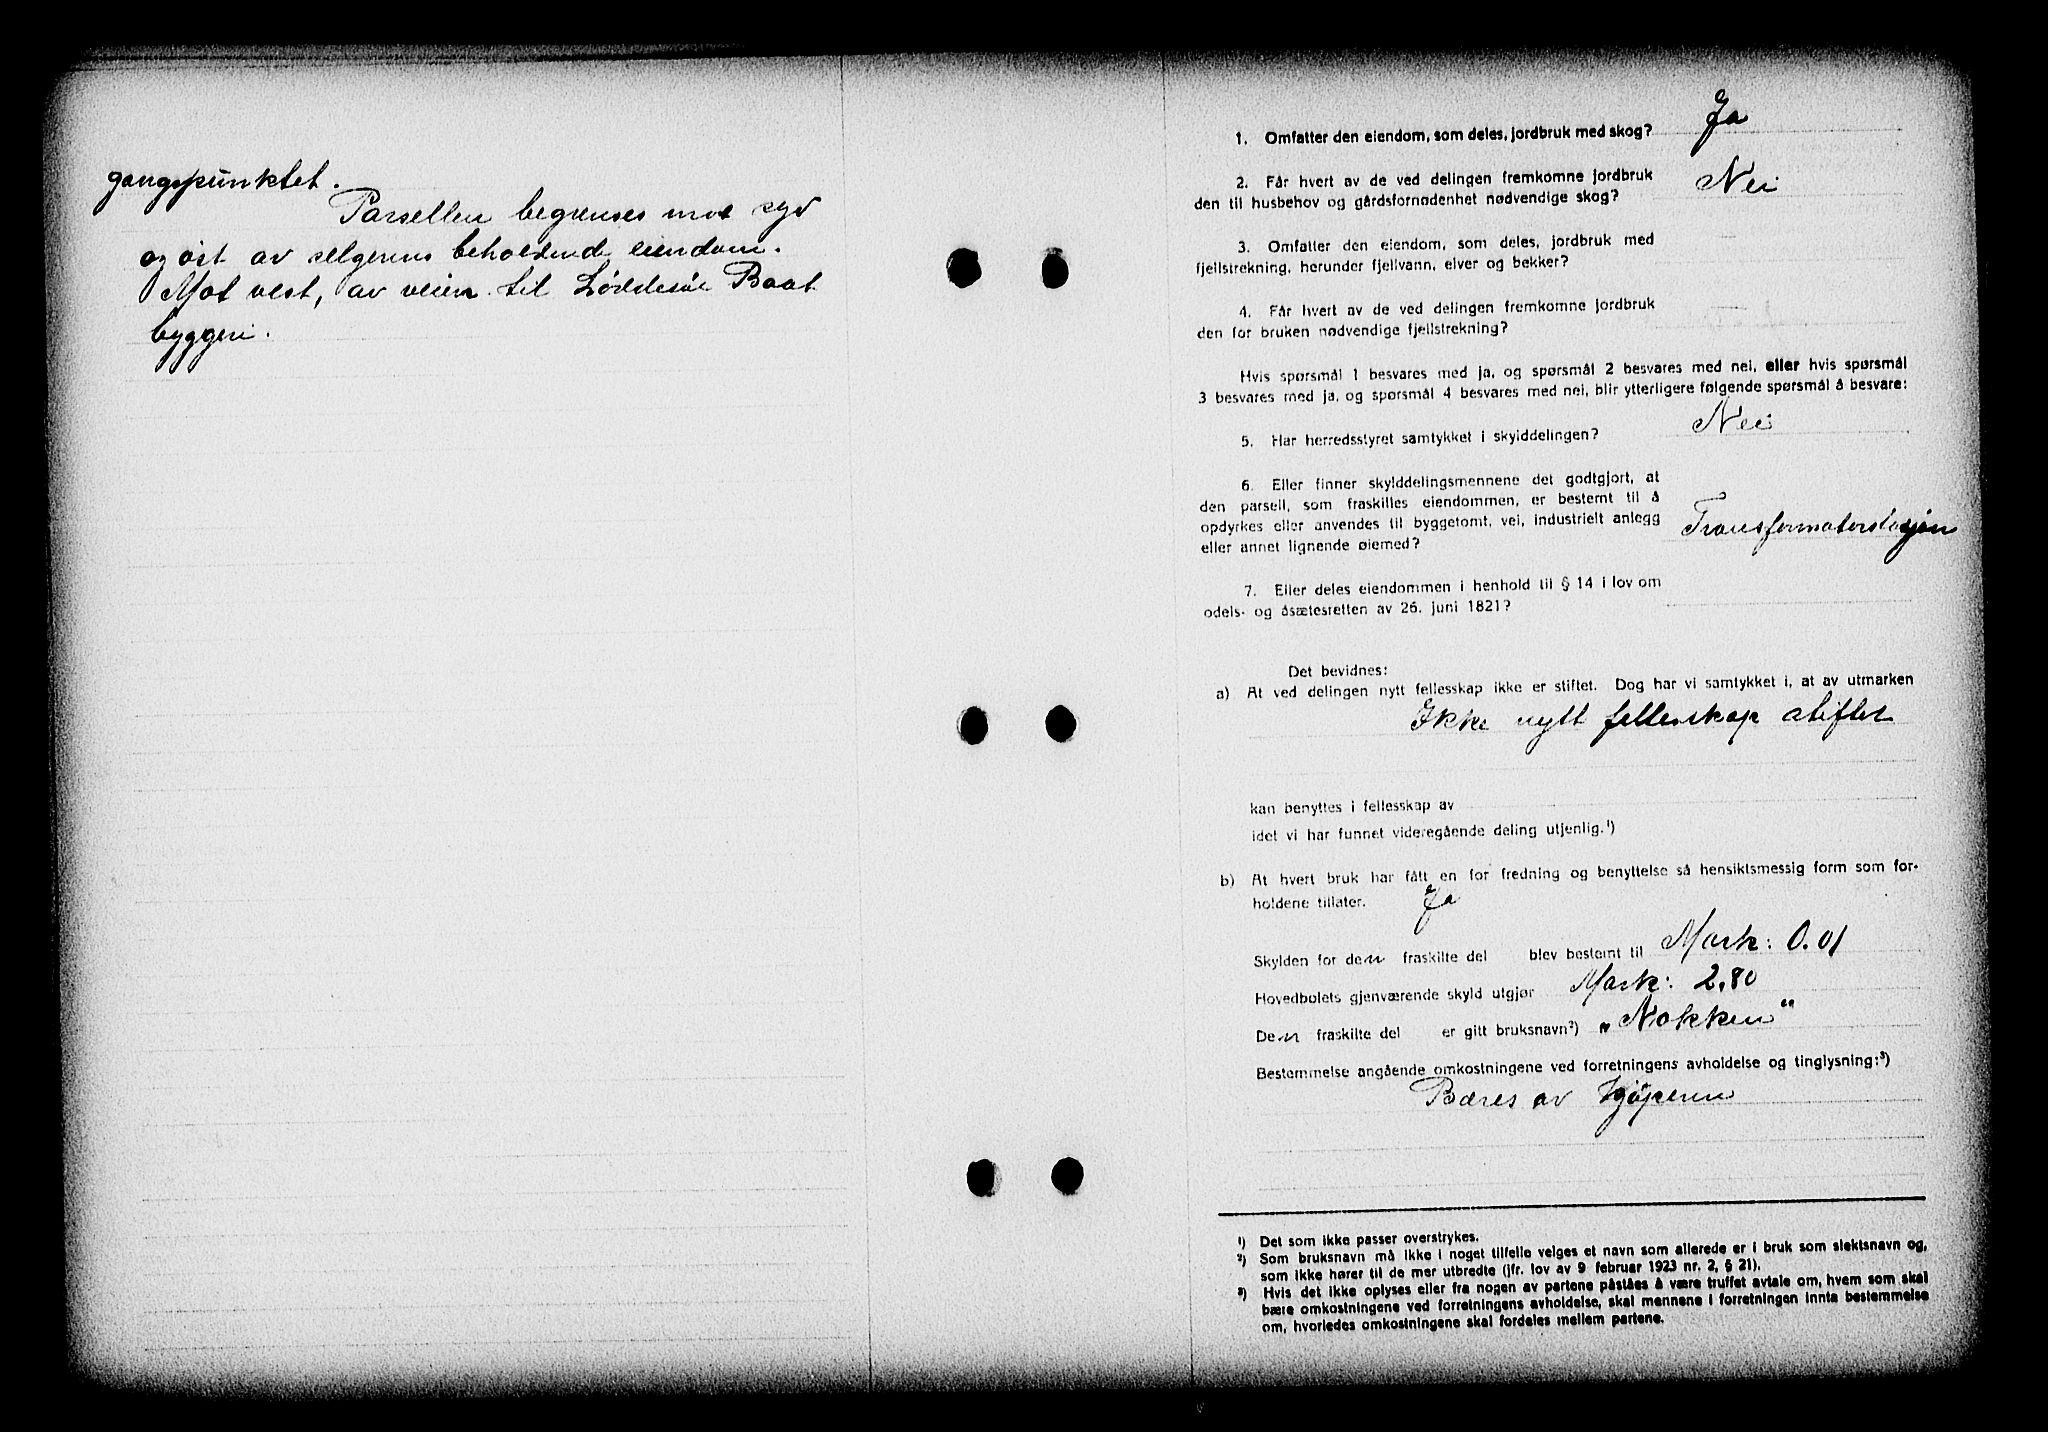 gangspunktet.
Parsellen begrenses mot syd
og øst av selgerens beholdende eiendom.
Mot vest, av veien til Båt
byggeri.
1. Omfatter den eiendom, som deles, jordbruk med skog? Ja
2. Får hvert av de ved delingen fremkomne jordbruk Nei
den til husbehov og gårdsfornødenhet nødvendige skog?
3. Omfatter den eiendom, som deles, jordbruk med —
fjellstrekning, herunder fjellvann, elver og bekker?
4. Får hvert av de ved delingen fremkomne jordbruk —
den for bruken nødvendige fjellstrekning?
Hvis spørsmål 1 besvares med ja, og spørsmål 2 besvares med nei, eller hvis spørsmål
3 besvares med ja, og spørsmål 4 besvares med nei, blir ytterligere følgende spørsmål å besvare:
5. Har herredsstyret samtykket i skylddelingen? Nei
6. Eller finner skylddelingsmennene det godtgjort, at
den parsell, som fraskilles eiendommen, er bestemt til å
opdyrkes eller anvendes til byggetomt, vei, industrielt anlegg Transformatorstasjon
eller annet lignende øiemed?
7. Eller deles eiendommen i henhold til § 14 i lov om
odels- og åsætesretten av 26. juni 1821?
Det bevidnes:
a) At ved delingen nytt fellesskap ikke er stiftet. Dog har vi samtykket i, at av utmarken
Ikke nytt fellesskap stiftet
kan benyttes i fellesskap av
idet vi har funnet videregående deling utjenlig.¹)
b) At hvert bruk har fått en for fredning og benyttelse så hensiktsmessig form som for-
holdene tillater. Ja
Skylden for den fraskilte del blev bestemt til Mark: 0.01
Hovedbølets gjenværende skyld utgjør Mark: 2,80
Den fraskilte del er gitt bruksnavn²) „Nokken“
Bestemmelse angående omkostningene ved forretningens avholdelse og tinglysning:³)
Bæres av kjøperen
¹) Det som ikke passer overstrykes.
²) Som bruksnavn må ikke i noget tilfelle velges et navn som allerede er i bruk som slektsnavn og,
som ikke hører til de mer utbredte (jfr. lov av 9 februar 1923 nr. 2, § 21).
³) Hvis det ikke oplyses eller fra nogen av partene påståes å være truffet avtale om, hvem som skal
bære omkostningene ved forretningens avholdelse, skal mennene i forretningen innta bestemmelse
om, hvorledes omkostningene skal fordeles mellem partene.